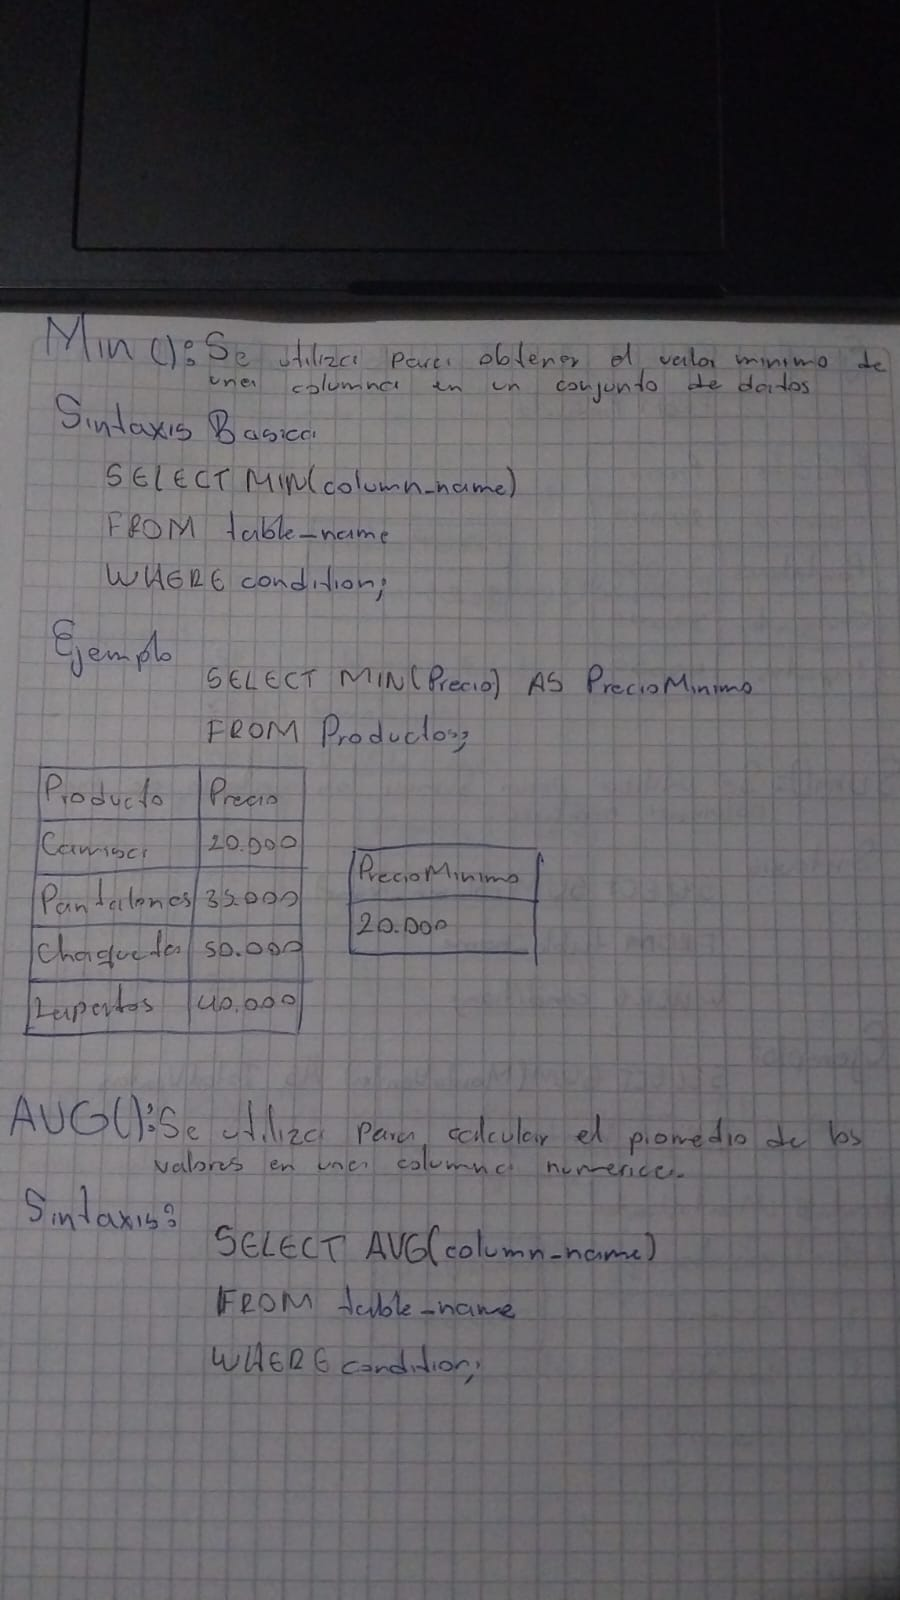 Min (): Se utiliza para obtener el valor minimo de
una columna en un conjunto de datos
Sintaxis Basica
SELECT MIN(column_name)
FROM table_name
WHERE condition;
Ejemplo
SELECT MIN(Precio) AS PrecioMinimo
FROM Productos;
Producto Precio
Camisa 20.000
Pantalones 35.000
Chaqueta 50.000
Zapatos 40.000
PrecioMinimo
20.000
AVG(): Se utiliza para calcular el promedio de los
valores en una columna numerica.
Sintaxis:
SELECT AVG(column_name)
FROM table_name
WHERE condition;